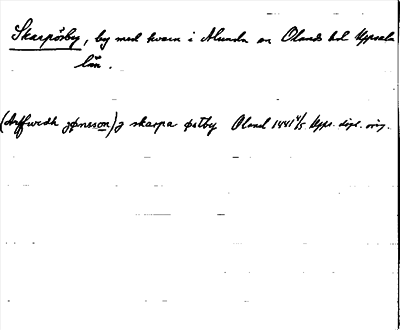 Skarpösby, by med kvarn i Alunda sn Olands hd Uppsala
län.
(Arffwedh jønsson) j skarpa østby Oland 1441 4/5 Upps. dipl. orig.